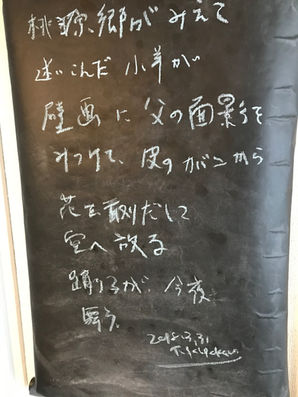 桃源郷がみえて
迷いこんだ小羊が
壁画に父の面影を
みつけて、皮のがまから
花を取りだして
空へ放る
踊り子が、今夜
舞う
2018.3.31